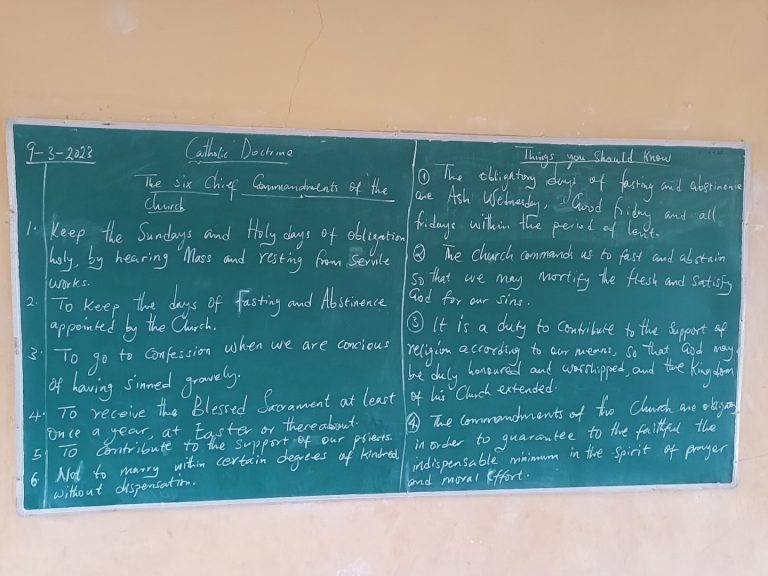 9-3-2023
Catholic Doctrine
The six Chief Commandments of the
Church
1. Keep the Sundays and Holy days of obligation
holy, by hearing Mass and resting from Servile
works.
2. To keep the days of Fasting and Abstinence
appointed by the Church.
3. To go to confession when we are concious
of having sinned gravely.
4. To receive the Blessed Sacrament at least
once a year, at Easter or thereabout.
5. To contribute to the support of our priests.
6. Not to marry within certain degrees of kindred
without dispensation.
Things you Should Know
① The obligatory days of fasting and abstinence
are Ash Wednesday, Good friday and all
fridays within the period of lent.
② The Church commands us to fast and abstain
so that we may mortify the flesh and satisfy
God for our sins.
③ It is a duty to contribute to the support of
religion according to our means, so that God may
be duly honoured and worshipped, and the Kingdom
of his Church extended.
④ The commandments of the Church are
in order to guarantee to the faithful the
indispensable minimum in the spirit of prayer
and moral effort.